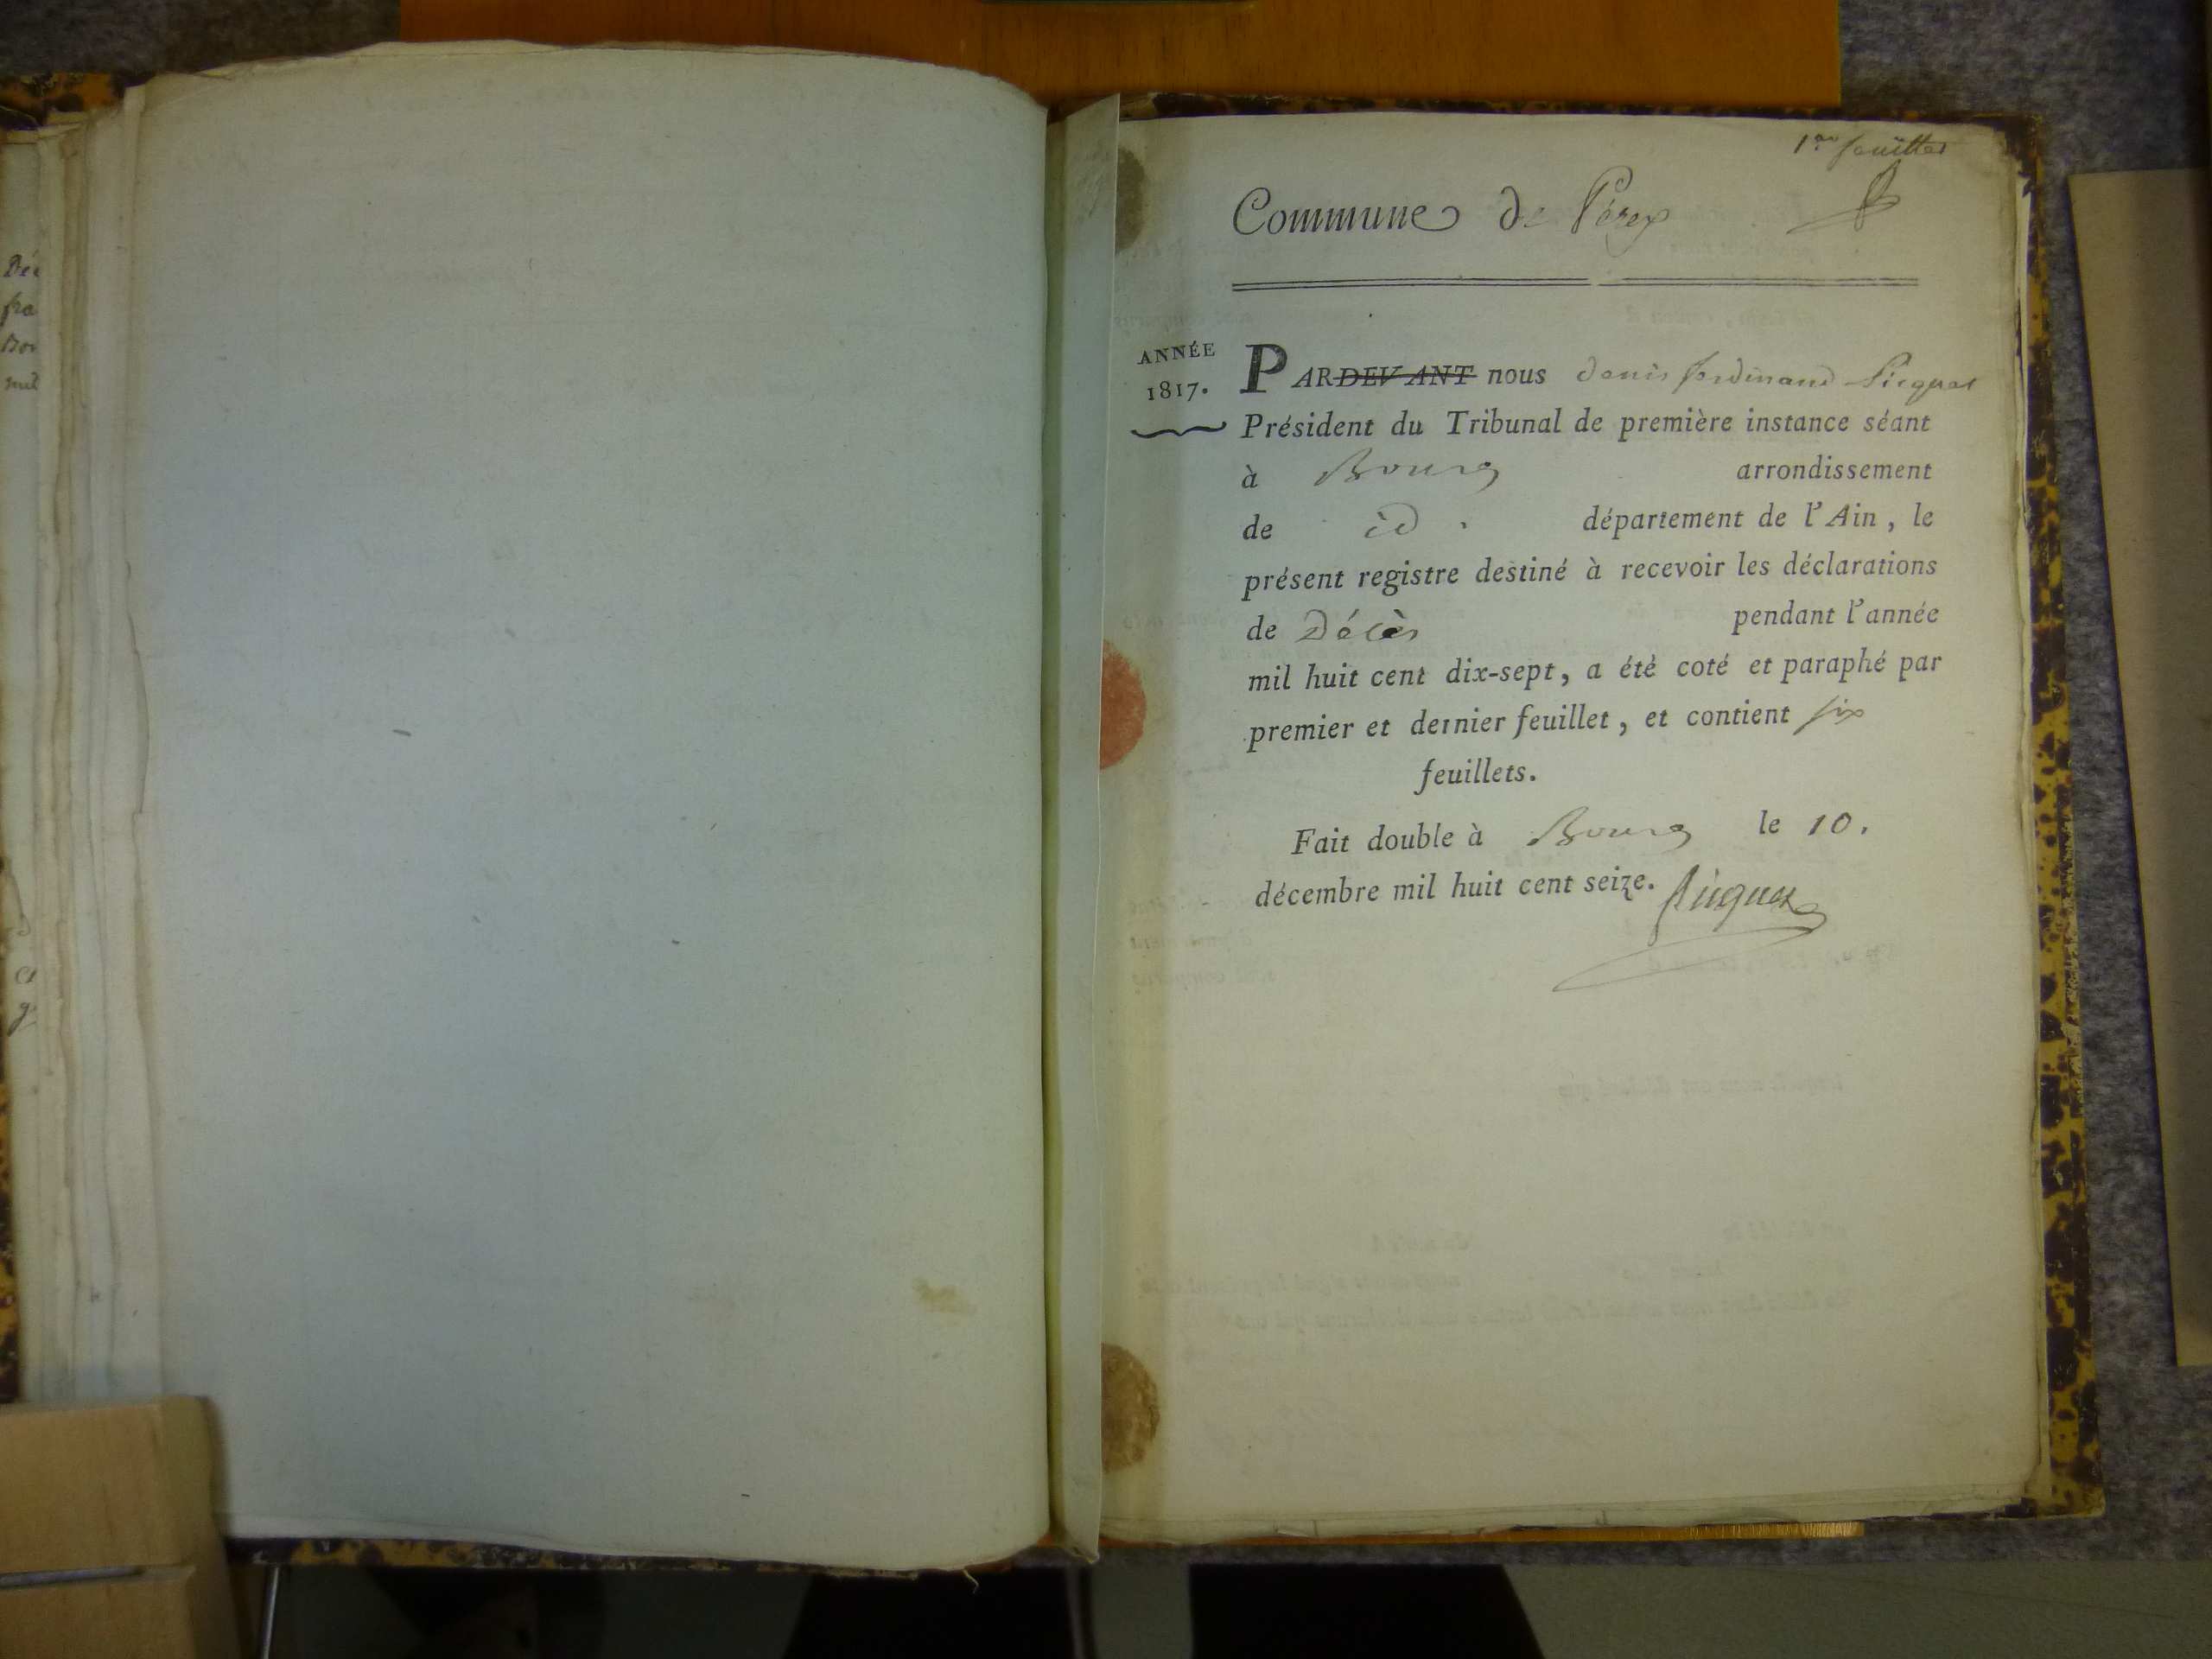 Déc
fra
Bou
mil
1er feuillet
Commune de Pérex
ANNÉE
1817.
PARDEVANT nous denis ferdinand Picquet
Président du Tribunal de première instance séant
à Bourg arrondissement
de id. département de l'Ain, le
présent registre destiné à recevoir les déclarations
de Décès pendant l'année
mil huit cent dix-sept, a été coté et paraphé par
premier et dernier feuillet, et contient six
feuillets.
Fait double à Bourg le 10.
décembre mil huit cent seize. Picquet